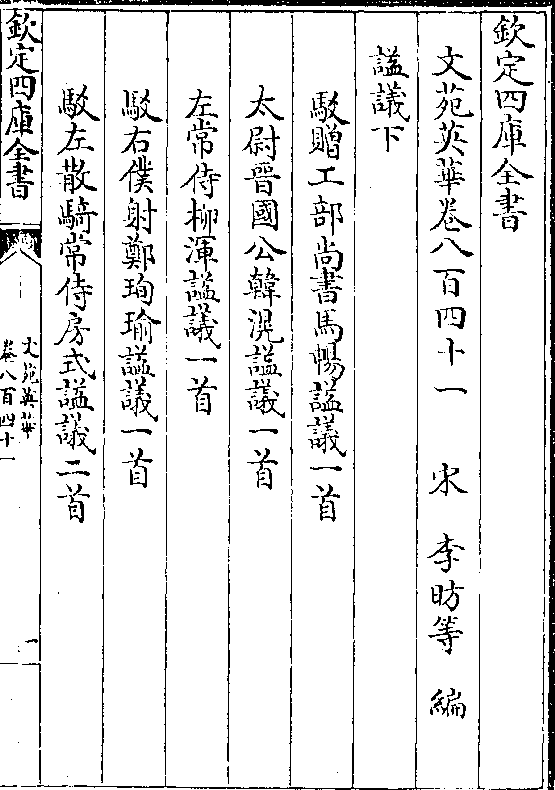 欽定四庫全書
文苑英華卷八百四十一　宋　李昉等　編
諡議下
駮贈工部尚書馬暢諡議一首
太尉晉國公韓滉諡議一首
左常侍柳渾諡議一首
駮右僕射鄭珣瑜諡議一首
駮左散騎常侍房式諡議二首
欽定四庫全書
文苑英華
卷八百四十一
一